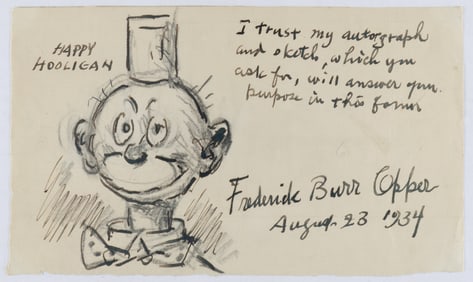 HAPPY
HOOLIGAN
I trust my autograph
and sketch, which you
ask for, will answer your
purpose in this form
Frederick Burr Opper
August 23 1934